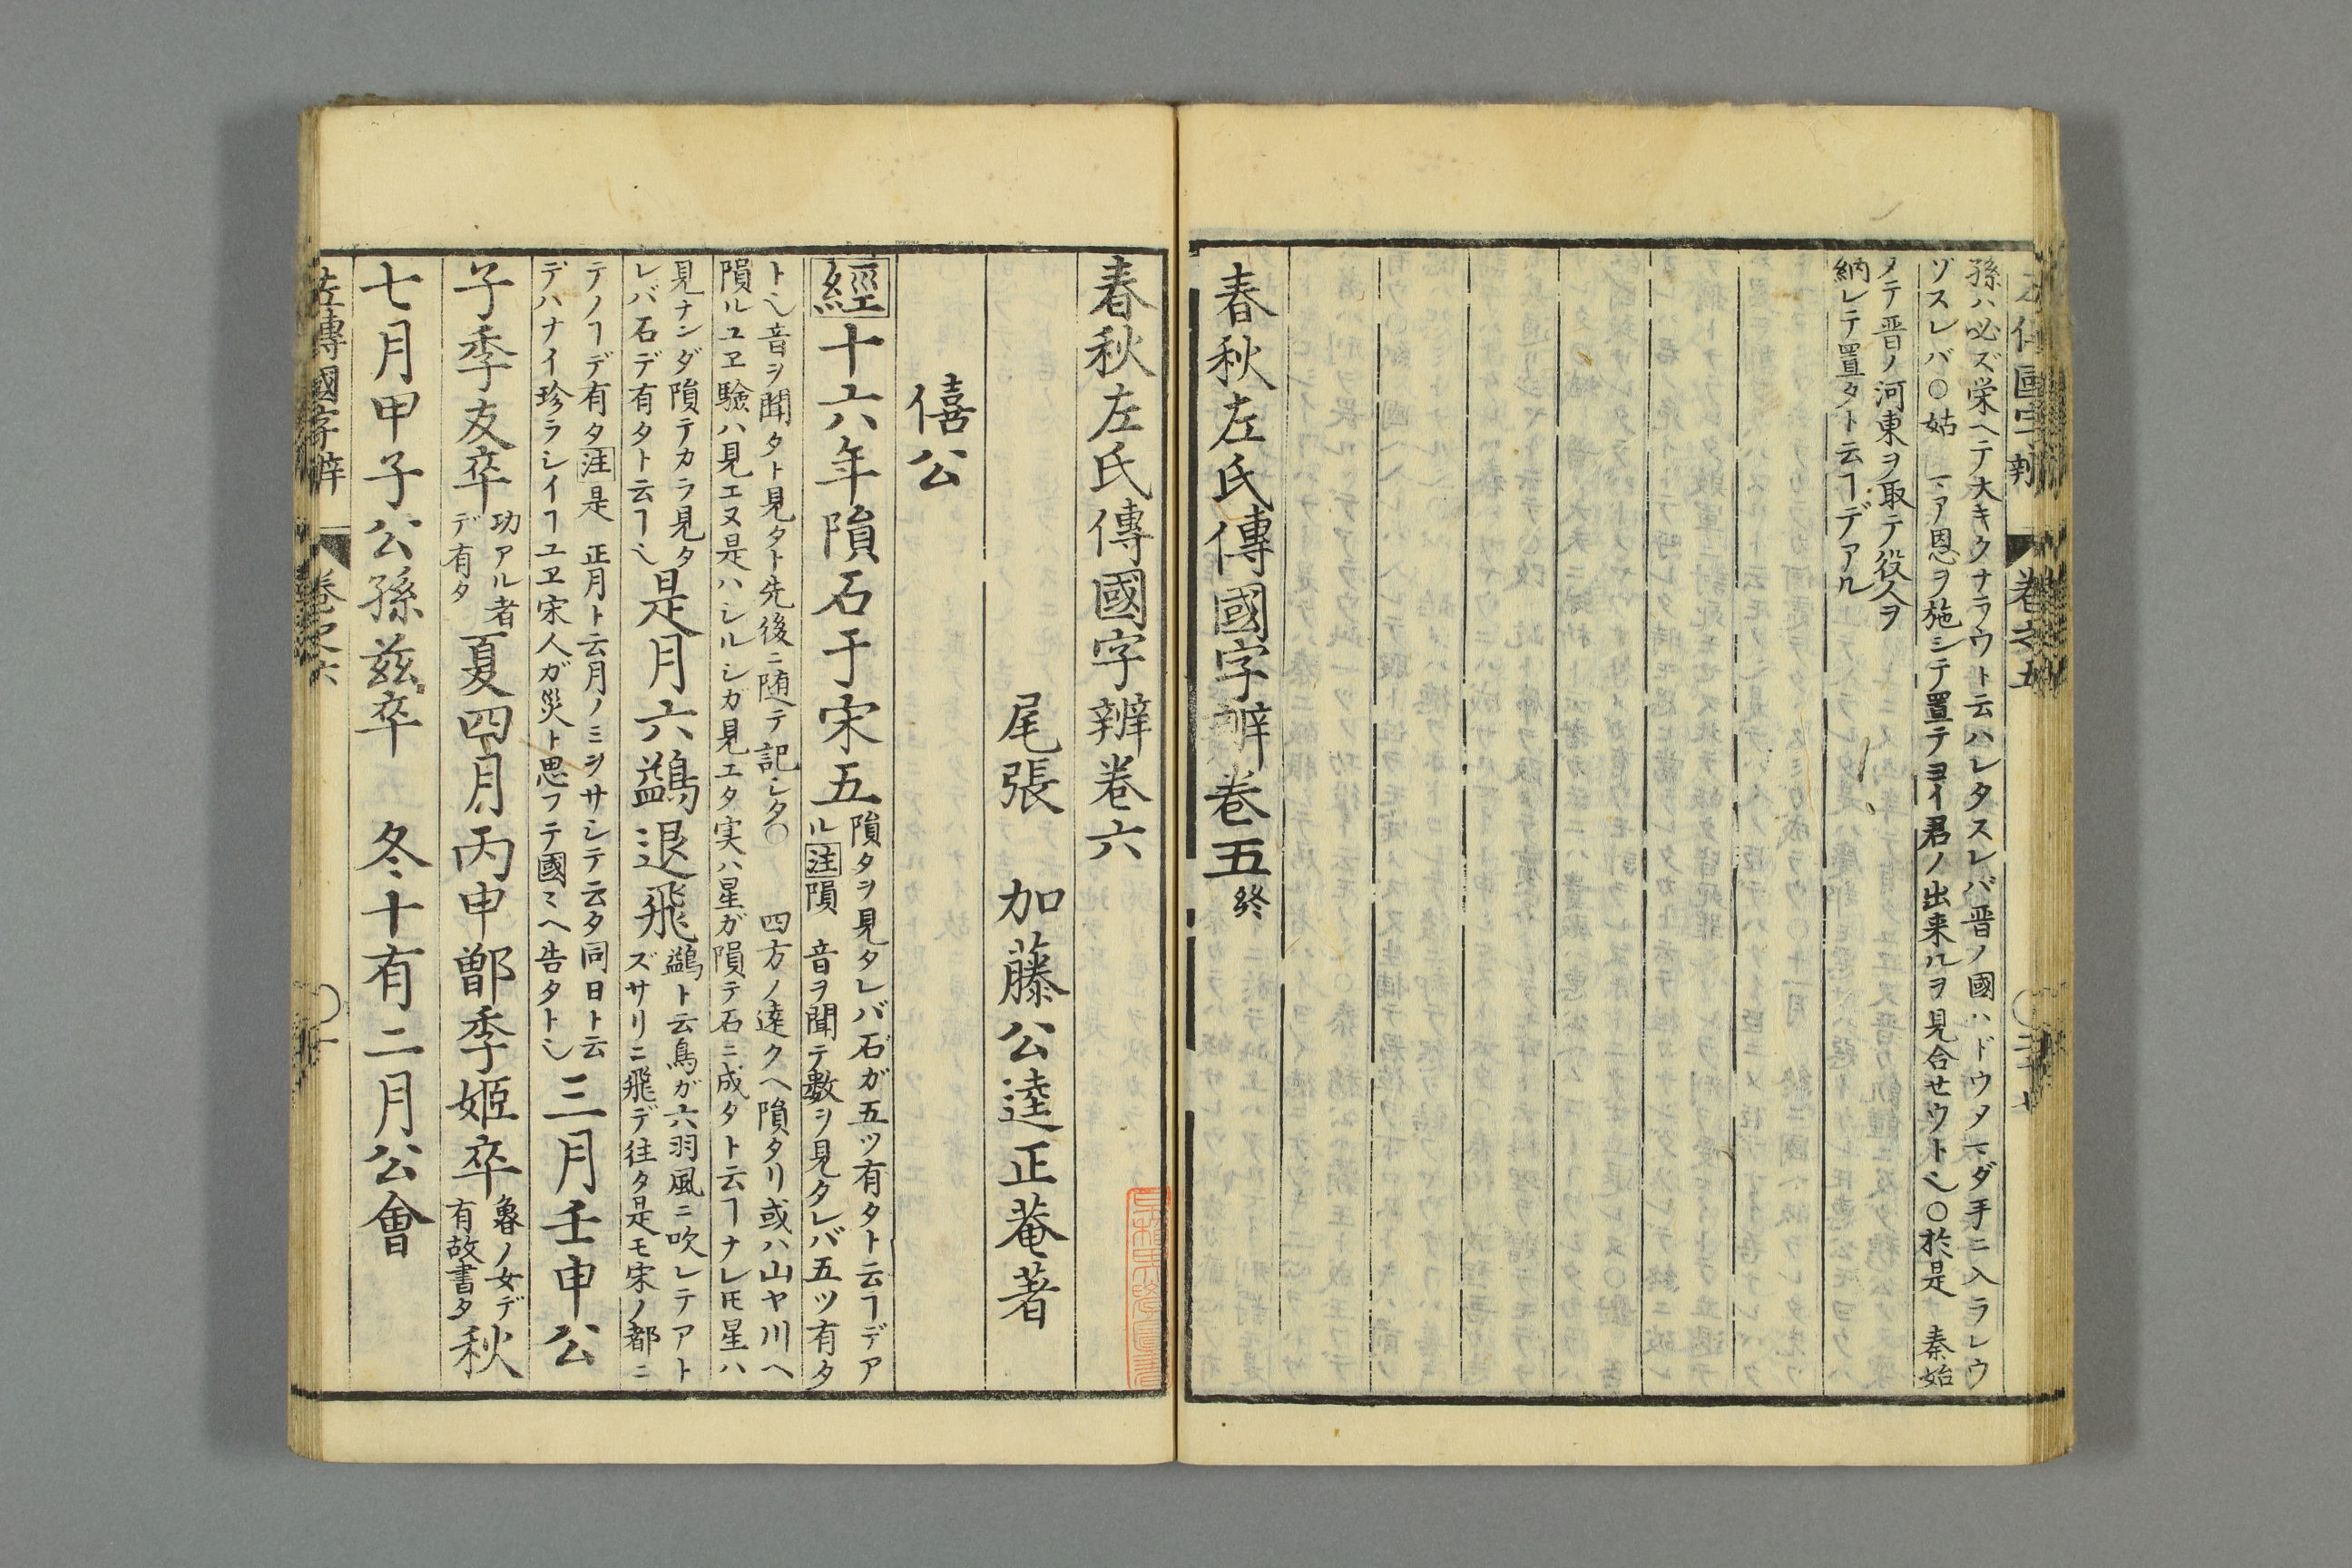 孫ハ必ズ栄ヘテ大キクナラウト云ハレタスレバ晋ノ國ハドウメヿダ手ニ入ラレウ
ゾスレバ〇姑 恩ヲ施シテ置テヨイ君ノ出来ルヲ見合セウト〇於是 秦始
メテ晋ノ河東ヲ取テ役人ヲ
納レテ置タト云ヿデアル
春秋左氏傳國字辨卷五終
春秋左氏傳國字辨卷六
尾張 加藤公逵正菴著
僖公
經十六年隕石于宋五
隕タヲ見タレバ石ガ五ツ有タト云ヿデア
ル注隕 音ヲ聞テ數ヲ見タレバ五ツ有タ
ト 音ヲ聞タト見タト先後ニ随テ記シタ〇 四方ノ遠クヘ隕タリ或ハ山ヤ川ヘ
隕ルユヱ驗ハ見エヌ是ハシルシガ見エタ実ハ星ガ隕テ石ニ成タト云ヿナレ𪜈星ハ
見ナンダ隕テカラ見タ
レバ石デ有タト云ヿ
是月六鷁退飛
鷁ト云鳥ガ六羽風ニ吹レテアト
ズサリニ飛デ往タ是モ宋ノ都ニ
テノヿデ有タ注是 正月ト云月ノミヲサシテ云タ同日ト云
デハナイ珍ラシイヿユヱ宋人ガ災ト思フテ國ミヘ告タト
三月壬申公
子季友卒
功アル者
デ有タ
夏四月丙申鄫季姬卒
魯ノ女デ
有故書タ
秋
七月甲子公孫兹卒 冬十有二月公會
左傳國字辨 卷之六